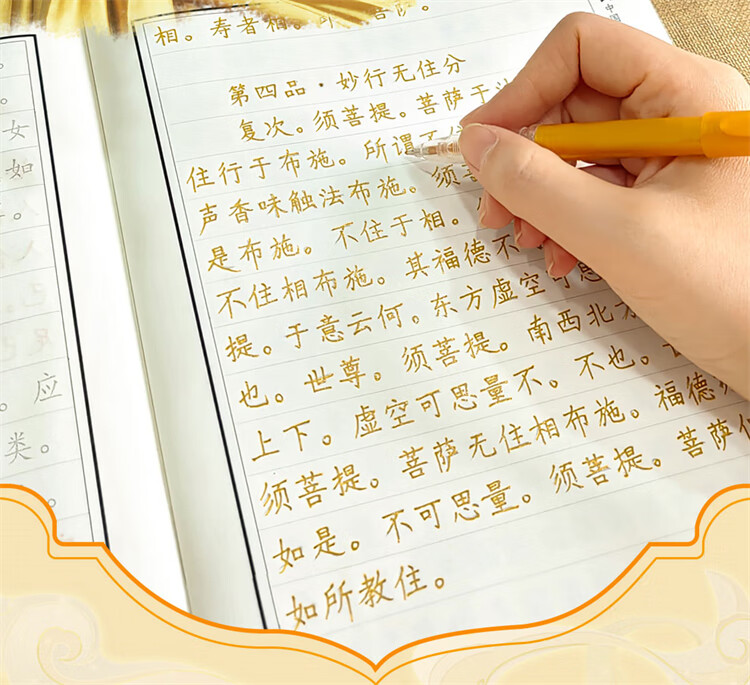 相。寿者相。
第四品·妙行无住分
复次。须菩提。菩萨于
住行于布施。所谓
声香味触法布施。须
是布施。不住于相。
不住相布施。其福德不
提。于意云何。东方虚空可思
也。世尊。须菩提。南西北方
上下。虚空可思量不。不也。
须菩提。菩萨无住相布施。福德
如是。不可思量。须菩提。菩萨
如所教住。
女
如
应
类。
中国